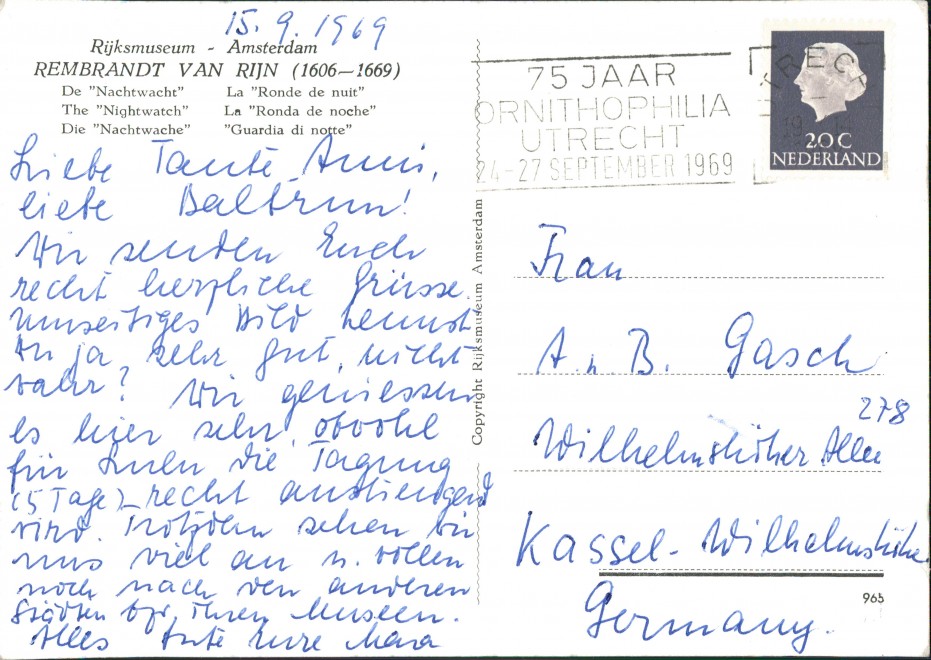 15.9.1969
Rijksmuseum - Amsterdam
REMBRANDT VAN RIJN (1606—1669)
De "Nachtwacht" La "Ronde de nuit"
The "Nightwatch" La "Ronda de noche"
Die "Nachtwache" "Guardia di notte"
Liebe Tante Anni,
liebe Baltrun!
Wir senden Euch
recht herzliche Grüsse.
Umseitiges Bild kennst
Du ja sehr gut, nicht
wahr? Wir geniessen
es hier sehr, obwohl
für die Tagung
(5 Tage) recht anstrengend
wird. Trotzdem sehen wir
uns viel an u. wollen
noch nach den anderen
Städten bzw. ihren Museen.
Alles Gute Eure
Copyright Rijksmuseum Amsterdam
75 JAAR
ORNITHOPHILIA
UTRECHT
24-27 SEPTEMBER 1969
UTRECHT
20C
NEDERLAND
Frau
A. u. B. Gasch
278
Wilhelmshöher Allee
Kassel-Wilhelmshöhe
Germany.
965